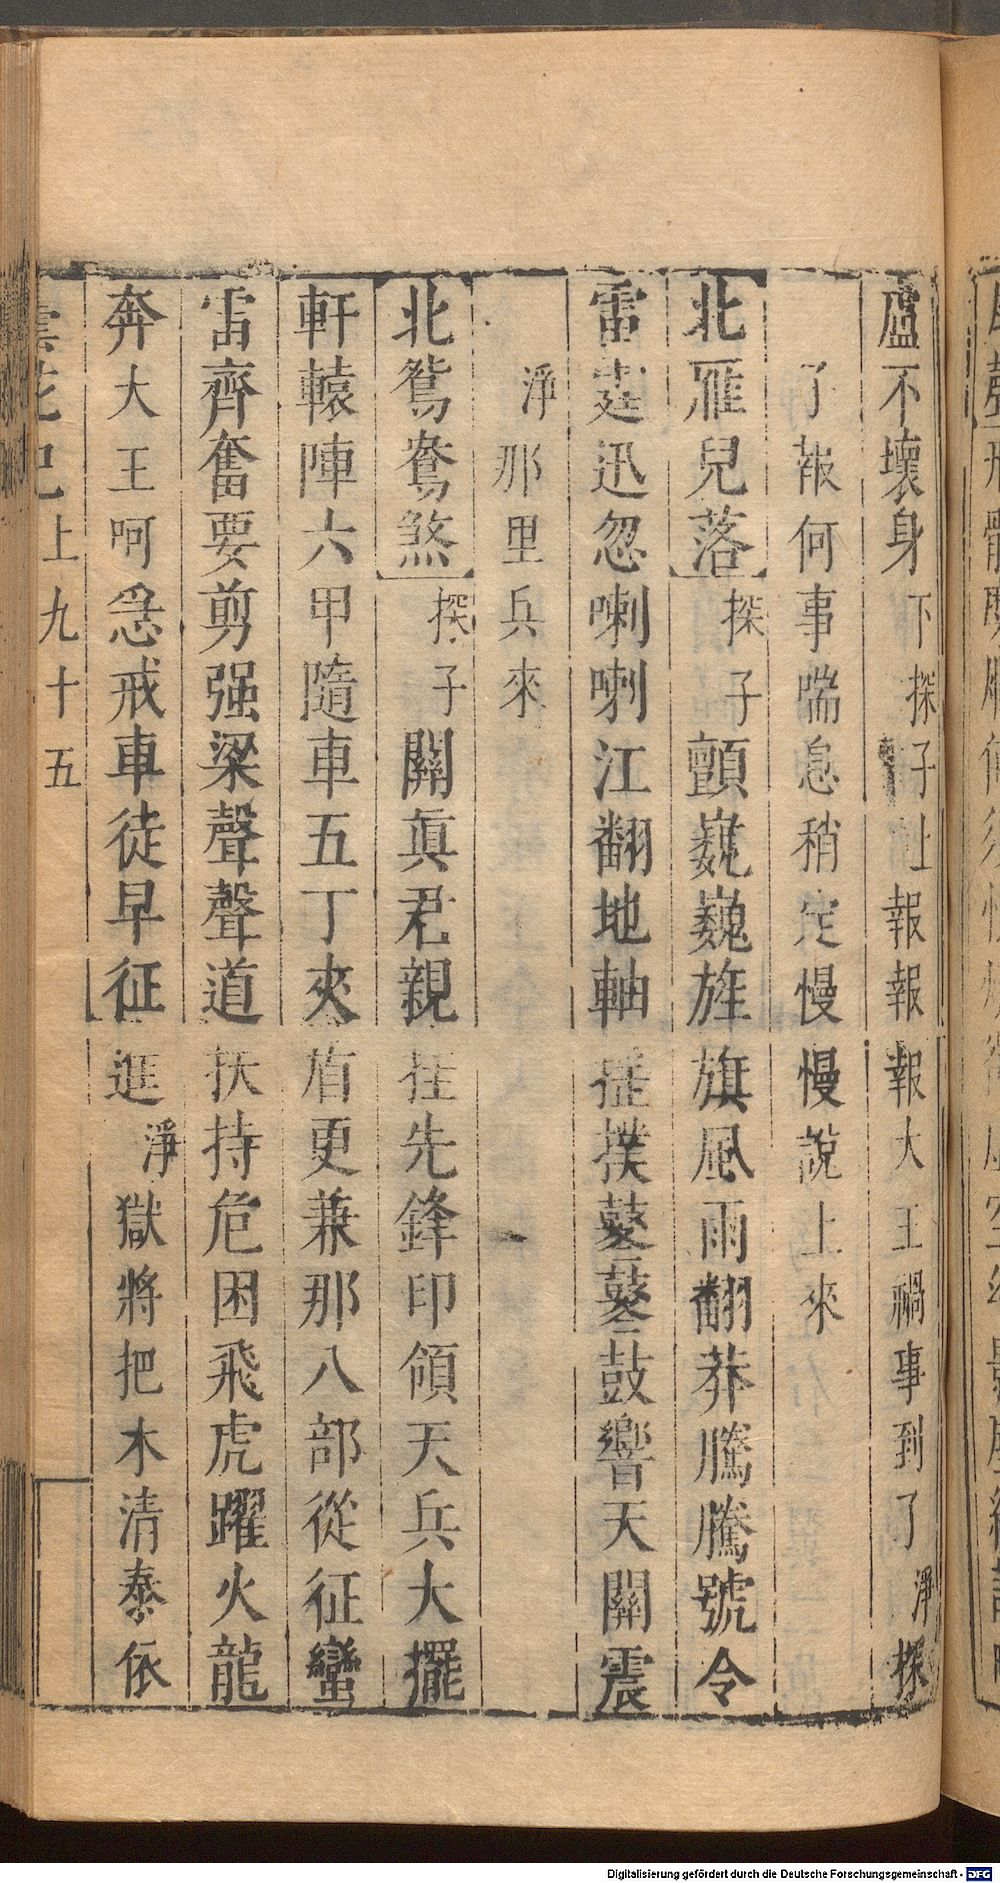 盧不壞身下探子上報報報大王禍事到了淨探
了報何事喘息稍定慢慢說上來
北雁兒落探子顫巍巍旌旗風雨翻莽騰騰號令
雷霆迅忽喇喇江翻地軸摇撲鼕鼕鼓響天關震
淨那里兵來
北鴛鴦煞探子關眞君親挂先鋒印領天兵大擺
軒轅陣六甲隨車五丁夾盾更兼那八部從征蠻
雷齊奮要剪强梁聲聲道扶持危困飛虎躍火龍
奔大王呵急戒車徒早征逛淨獄將把木清泰依
曇花記上九十五
Digitalisierung gefördert durch die Deutsche Forschungsgemeinschaft - DFG